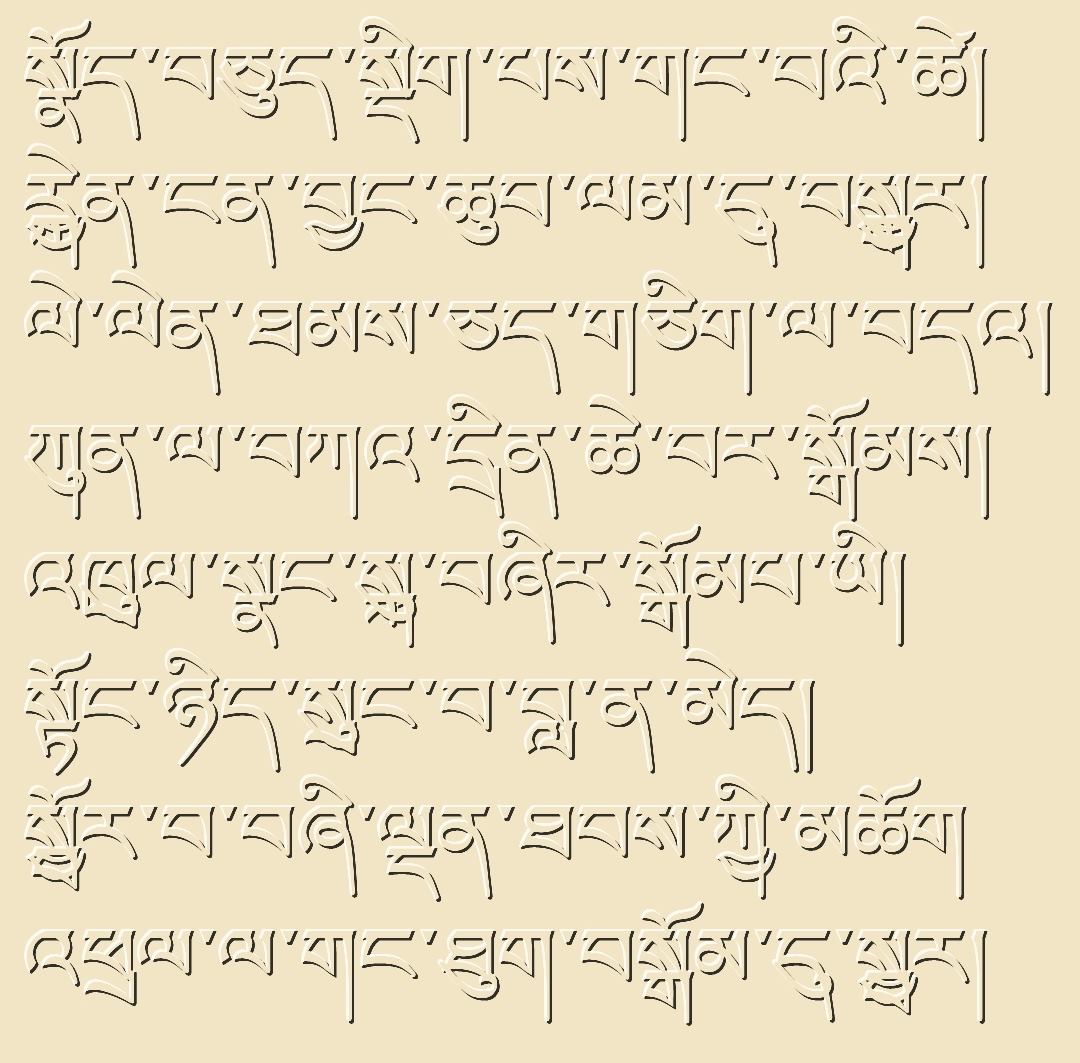 སྣོད་བཅུད་སྡིག་པས་གང་བའི་ཚེ།
རྐྱེན་ངན་བྱང་ཆུབ་ལམ་དུ་བསྒྱུར།
ལེ་ལེན་ཐམས་ཅད་གཅིག་ལ་བདའ།
ཀུན་ལ་བཀའ་དྲིན་ཆེ་བར་སྒོམས།
འཁྲུལ་སྣང་སྐུ་བཞིར་སྒོམཔ་ཡི།
སྟོང་ཉིད་སྲུང་བ་བླ་ན་མེད།
སྦྱོར་བ་བཞི་ལྡན་ཐབས་ཀྱི་མཆོག
འཕྲལ་ལ་གང་ཐུག་བསྒོམ་དུ་སྦྱར།